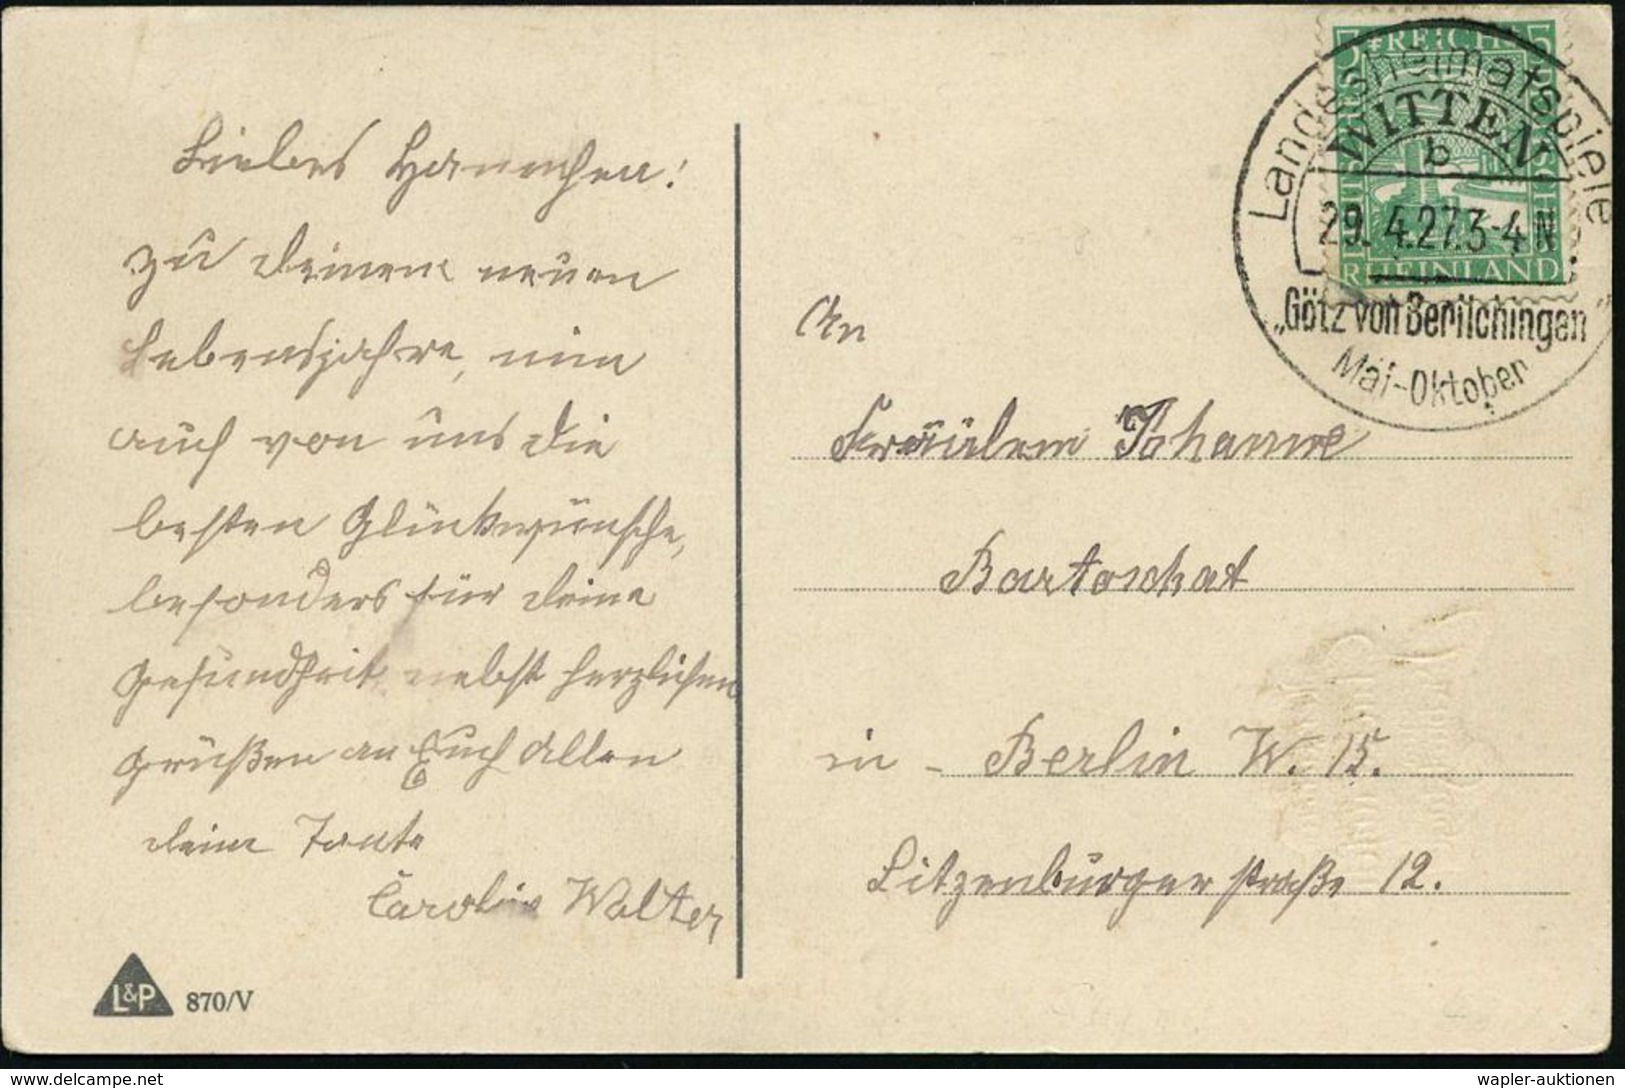 Liebes Hannchen!
zu deinem neuen
Lebensjahre, nim
auch von uns die
besten Glückwünsche,
besonders für deine
Gesundheit nebst herzlichen
Grüßen an Euch Allen
deine Tante
Caroline Walter
L&P 870/V
5 REICH 5
RHEINLAND
Landesheimatspiele
WITTEN
b
29. 4.27.3-4 N
„Götz von Berlichingen“
Mai-Oktober
An
Fräulein Johanne
Bartoschat
in - Berlin W. 15.
Litzenburgerstraße 12.
delcampe.net
wapler-auktionen